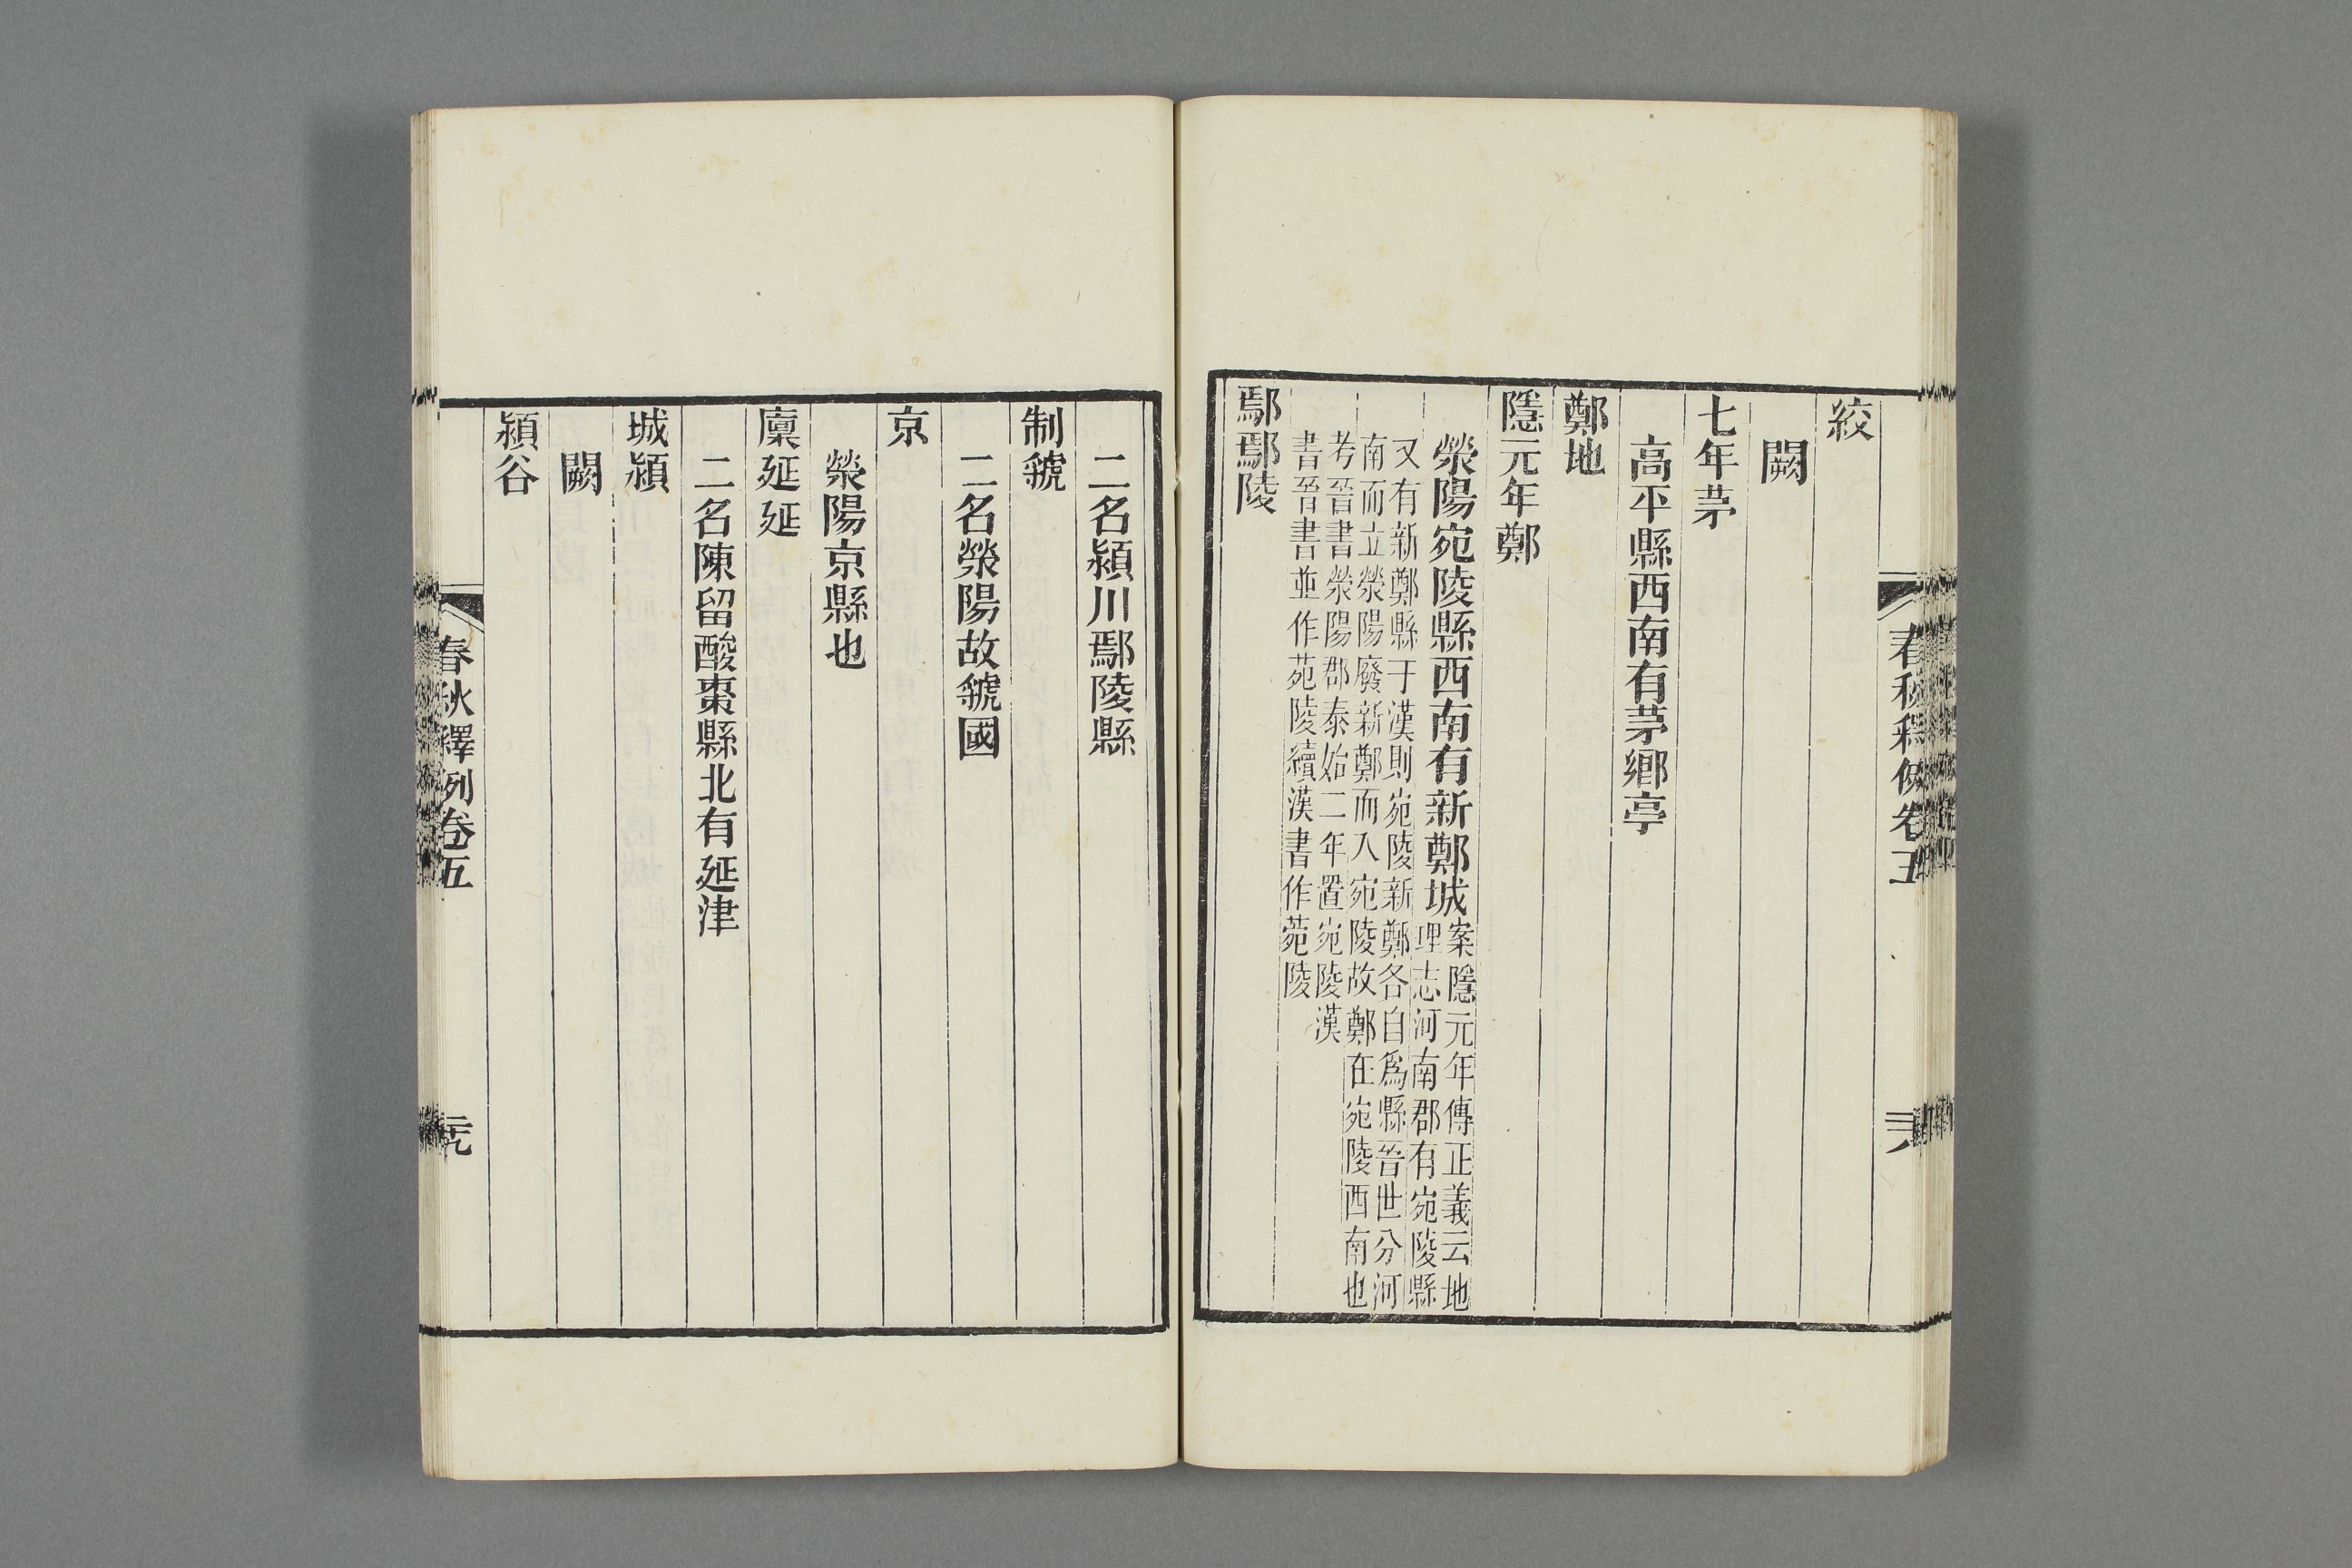 絞
闕
七年茅
高平縣西南有茅鄉亭
鄭地
隱元年鄭
滎陽宛陵縣西南有新鄭城案隱元年傳正義云地
理志河南郡有宛陵縣
又有新鄭縣于漢則宛陵新鄭各自爲縣晉世分河
南而立滎陽廢新鄭而入宛陵故鄭在宛陵西南也
考晉書滎陽郡泰始二年置宛陵漢
書晉書並作苑陵續漢書作菀陵
鄢鄢陵
二名潁川鄢陵縣
制虢
二名滎陽故虢國
京
滎陽京縣也
廩延延
二名陳留酸棗縣北有延津
城潁
闕
潁谷
春秋釋例卷五
春秋釋例卷五